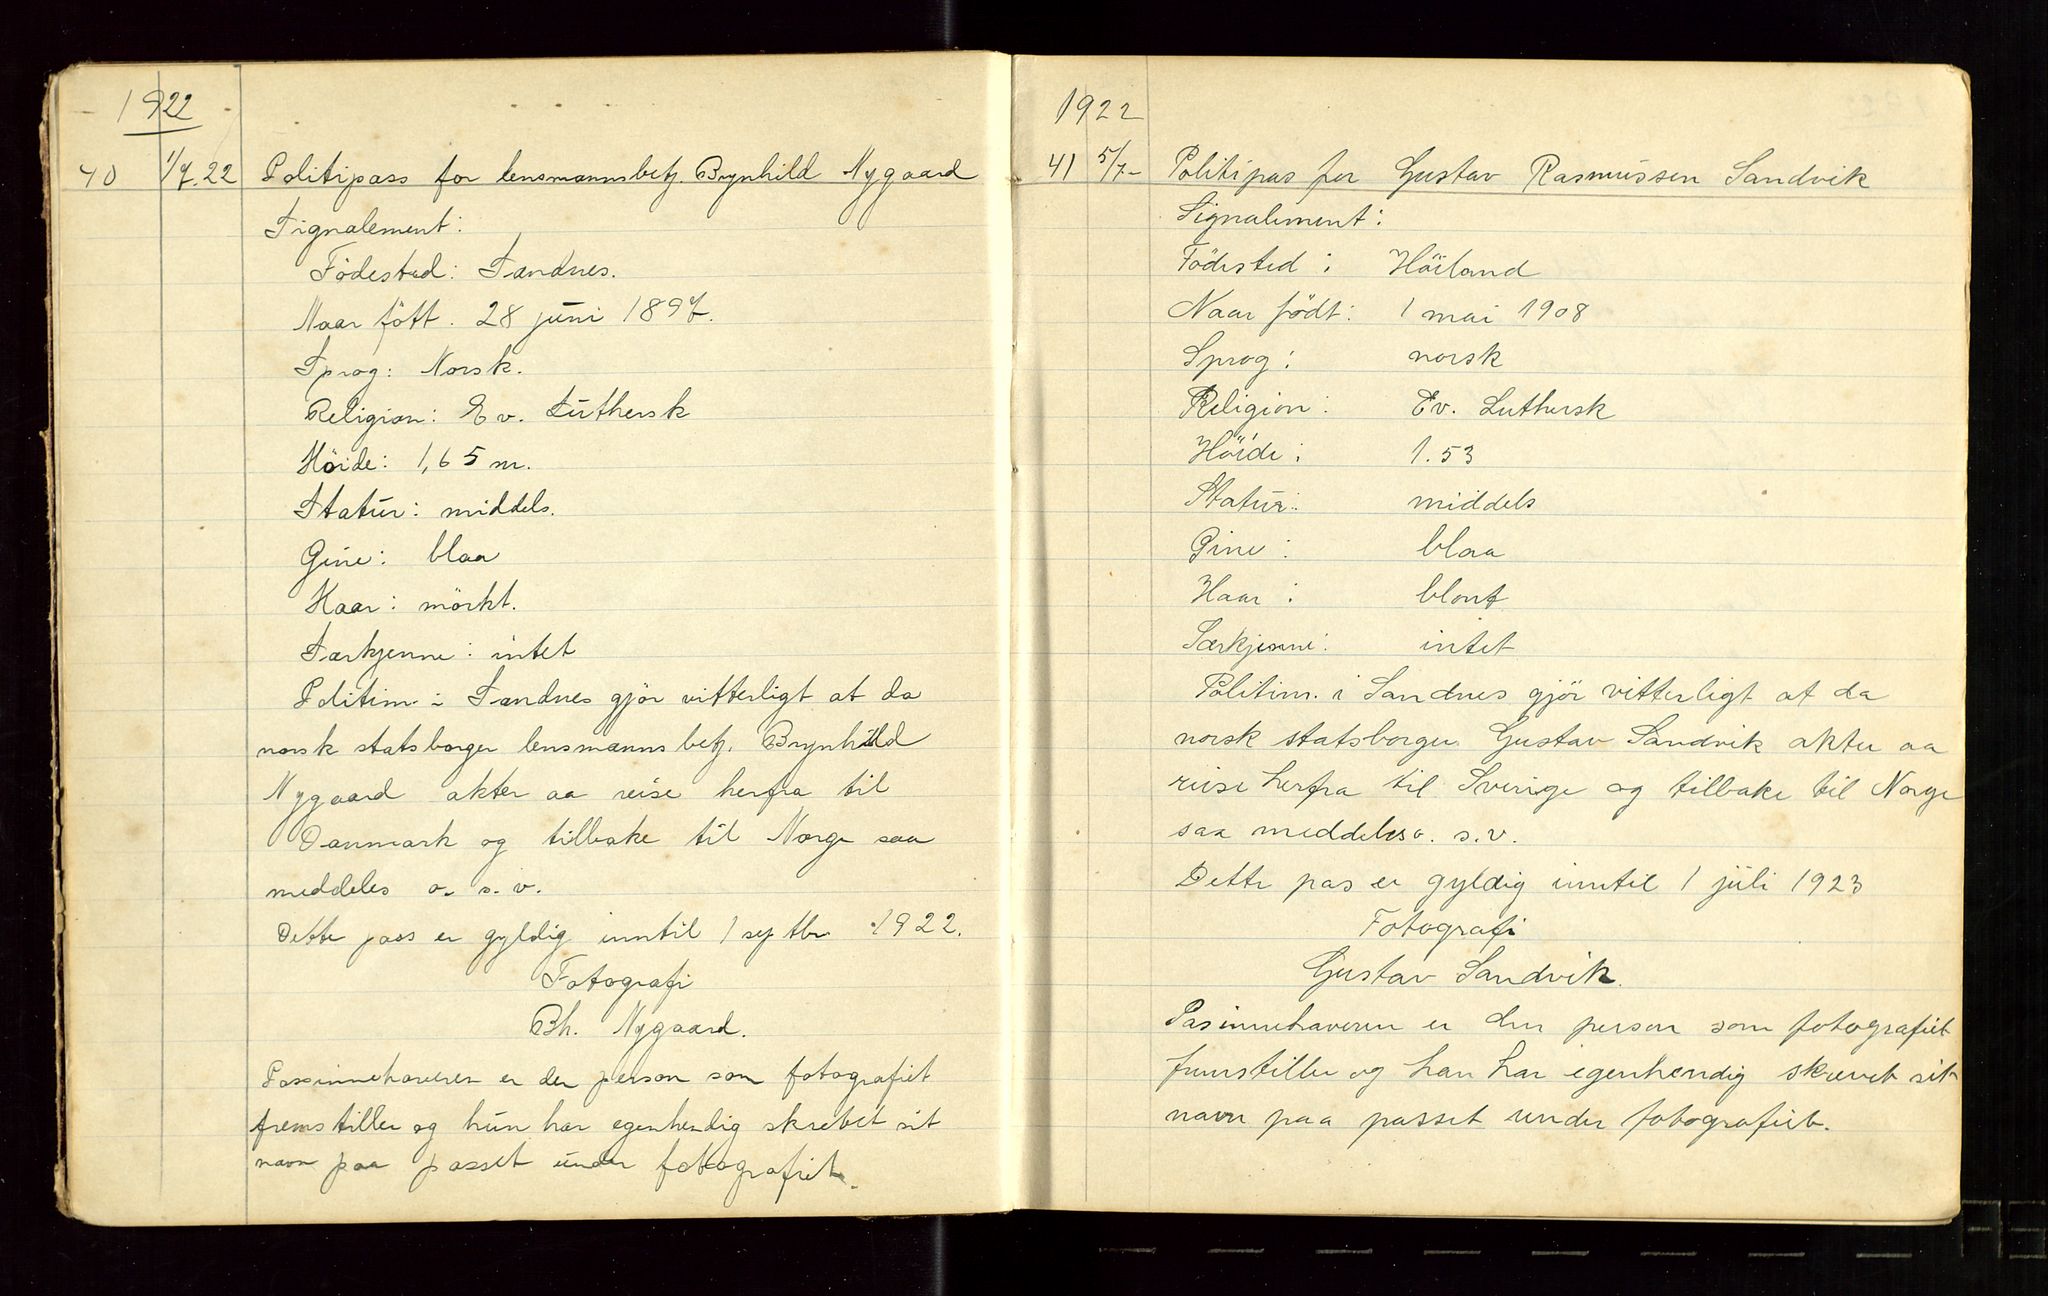 1922
40 1/7.22 Politipass for lensmannsbetj. Brynhild Nygaard
Signalement:
Födested: Sandnes.
Naar fött. 28 juni 1897.
Sprog: Norsk.
Religion: Ev. Luthersk
Höide: 1,65 m.
Statur: middels.
Öine: blaa
Haar: mörkt.
Særkjenne: intet
Politim. i Sandnes gjör vitterligt at da
norsk statsborger lensmannsbetj. Brynhild
Nygaard akter aa reise herfra til
Danmark og tilbake til Norge saa
meddeles o. s. v.
Dette pass er gyldig inntil 1 septbr 1922.
Fotografi
Bh. Nygaard.
Passinnehaveren er den person som fotografiet
fremstiller og hun har egenhendig skrevet sit
navn paa passet under fotografiet.
1922
41 5/7- Politipas for Gustav Rasmussen Sandvik
Signalement:
Födested: Höiland
Naar födt: 1 mai 1908
Sprog: norsk
Religion: Ev. Luthersk
Höide: 1.53
Statur: middels
Öine: blaa
Haar: blont
Særkjenne: intet
Politim. i Sandnes gjör vitterligt at da
norsk statsborger Gustav Sandvik akter aa
reise herfra til Sverige og tilbake til Norge
saa meddeles o. s. v.
Dette pas er gyldig inntil 1 juli 1923
Fotografi
Gustav Sandvik.
Pasinnehaveren er den person som fotografiet
fremstiller og han har egenhendig skrevet sit
navn paa passet under fotografiet.